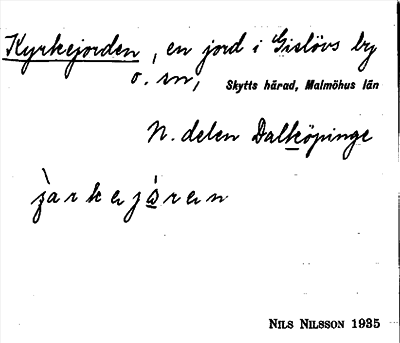 Kyrkejorden, en jord i Gislövs by
o. sn, Skytts härad, Malmöhus län
N. delen Dalköpinge
NILS NILSSON 1935